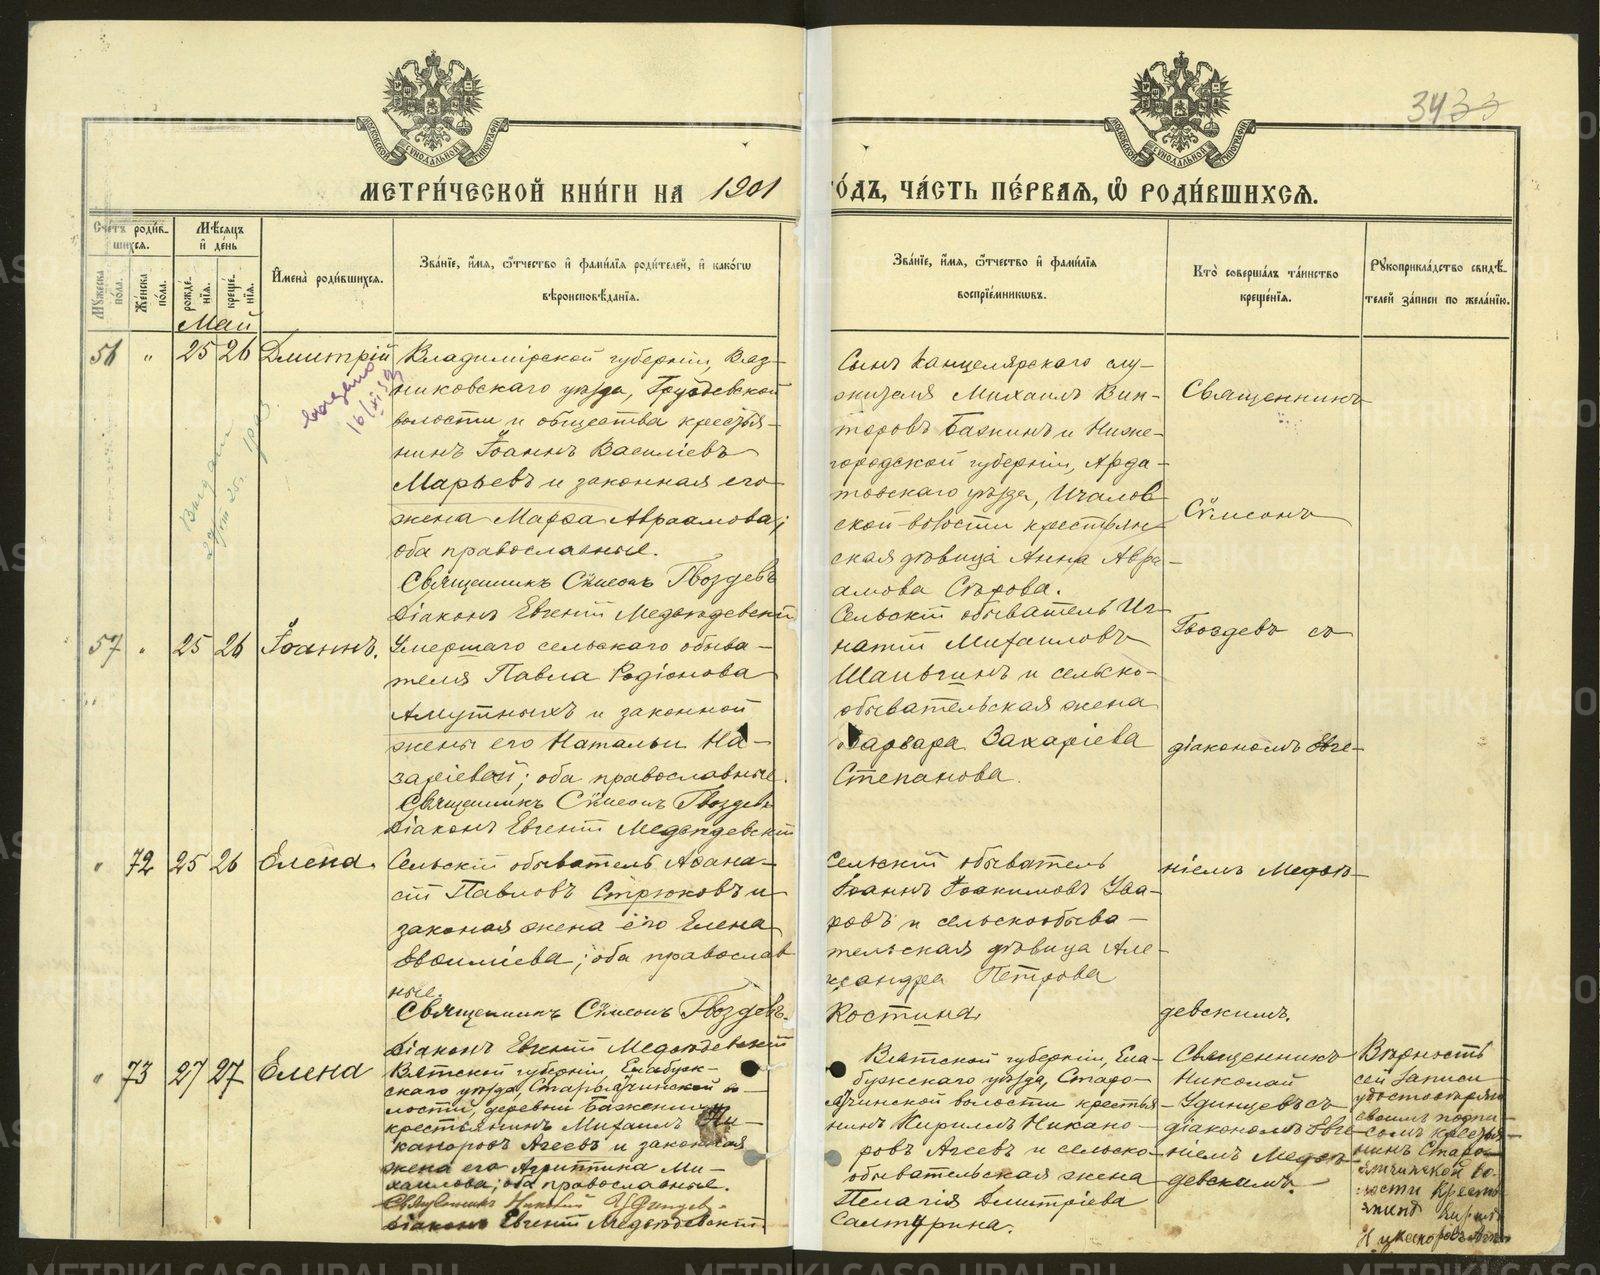 3433
МОСКОВСКОЙ СУНОДАЛЬНОЙ ТИПОГРАФІИ
МОСКОВСКОЙ СУНОДАЛЬНОЙ ТИПОГРАФІИ
МЕТРИ́ЧЕСКОЙ КНИ́ГИ НА 1901
ГО́ДЪ, ЧА́СТЬ ПЕ́РВАЯ, Ѡ РОДИ́ВШИХСЯ.
Сче́тъ роди́в-
шихся.
Му́жеска по́ла.
Же́нска по́ла.
Мѣ́сяцъ
и҆ де́нь
рожде́-
нїя.
креще́-
нїя.
И҆мена̀ роди́вшихся.
Зва́нїе, и҆́мя, ѻ҆́тчество и҆ фами́лїя роди́телей, и҆ како́гѡ
вѣроисповѣ́данїя.
Зва́нїе, и҆́мя, ѻ҆́тчество и҆ фами́лїя
воспрїе́мникѡвъ.
Кто̀ соверша́лъ та́инство
креще́нїя.
Рꙋкоприкла́дство свидѣ́-
телей за́писи по жела́нїю.
Май
56 " 25 26 Дмитрій
Владимірской губерніи, Вяз-
никовскаго уѣзда, Груздевской
волости и общества крестья-
нинъ Іоаннъ Василіевъ
Марьевъ и законная его
жена Марѳа Авраамова;
оба православные.
Священникъ Сѵмеонъ Гвоздевъ
Діаконъ Евгеній Медвѣдевскій
Сынъ канцелярскаго слу-
жителя Михаилъ Вик-
торовъ Бажинъ и Ниже-
городской губерніи, Арда-
товскаго уѣзда, Ичалов-
ской волости крестьян-
ская дѣвица Анна Авра-
амова Сѣрова.
Священникъ
Сѵмеонъ
выдано
16/XI 39
Выдана
57 " 25 26 Іоаннъ.
Умершаго сельскаго обыва-
теля Павла Родіонова
Амутныхъ и законной
жены его Натальи На-
заріевой; оба православные.
Священникъ Сѵмеонъ Гвоздевъ
Діаконъ Евгеній Медвѣдевскій
Сельскій обыватель Иг-
натій Михаиловъ
Шаньгинъ и сельско-
обывательская жена
Варвара Захаріева
Степанова.
Гвоздевъ съ
діакономъ Евге-
" 72 25 26 Елена.
Сельскій обыватель Аѳана-
сій Павловъ Стрюковъ и
законая жена его Елена
Евѳиміева; оба православ
ные.
Священникъ Сѵмеонъ Гвоздевъ.
Діаконъ Евгеній Медвѣдевскій
Сельскій обыватель
Іоаннъ Іоакимовъ Ува-
ровъ и сельскообыва-
тельская дѣвица Але-
ксандра Петрова
Костина.
ніемъ Медвѣ-
девскимъ.
" 73 27 27 Елена
Вятской губерніи, Елабуж-
скаго уѣзда, Старо-Ячинской во-
лости, деревни Баженихи
крестьянинъ Михаилъ Ни-
каноровъ Агеевъ и законная
жена его Агриппина Ми-
хаилова; оба православные.
Священникъ Николай Удинцевъ.
Діаконъ Евгеній Медвѣдевскій
Вятской губерніи, Ела-
бужскаго уѣзда, Старо-
Ячинской волости крестья-
нинъ Кириллъ Никано-
ровъ Агеевъ и сельско-
обывательская жена
Пелагія Димитріева
Салтурина.
Священникъ
Николай
Удинцевъ съ
діакономъ Евге-
ніемъ Медвѣ-
девскимъ.
Вѣрность
сей записи
удостовѣряю
своимъ подпи-
сомъ крестья-
нинъ Старо-
Ячинской во-
лости